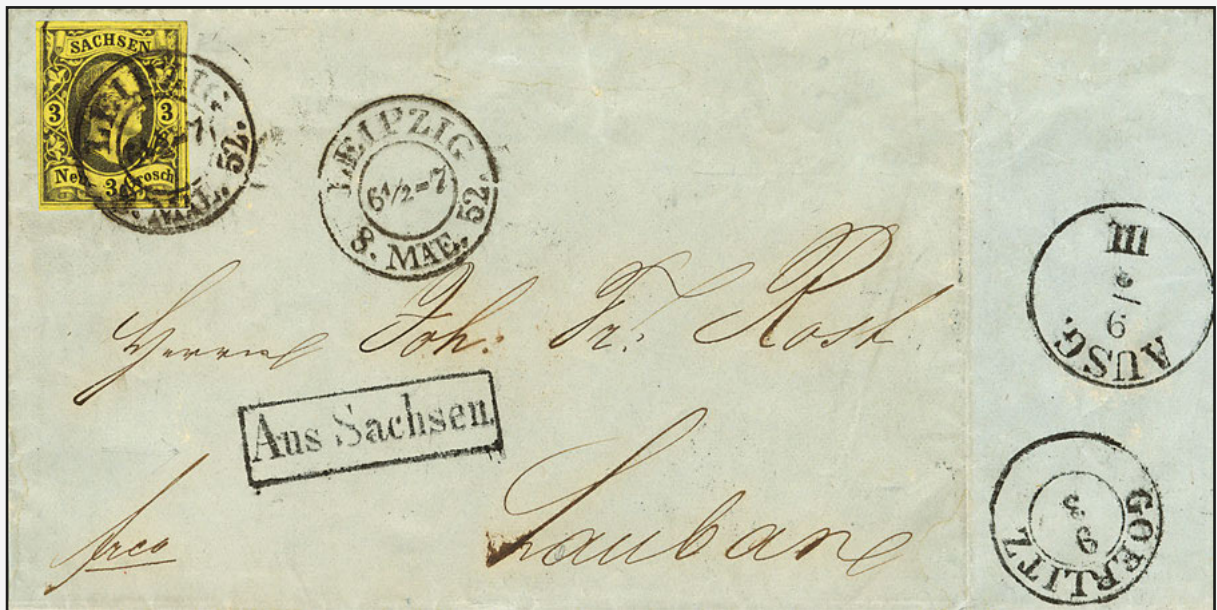 SACHSEN
3 3
Neu 3 Grosch
LEIPZIG
52.
LEIPZIG
6 1/2=7
8. MAE. 52.
Herrn Joh: Fr: Rost
Aus Sachsen
frco
Lauban
AUSG.
9/3
III
GOERLITZ
9 3